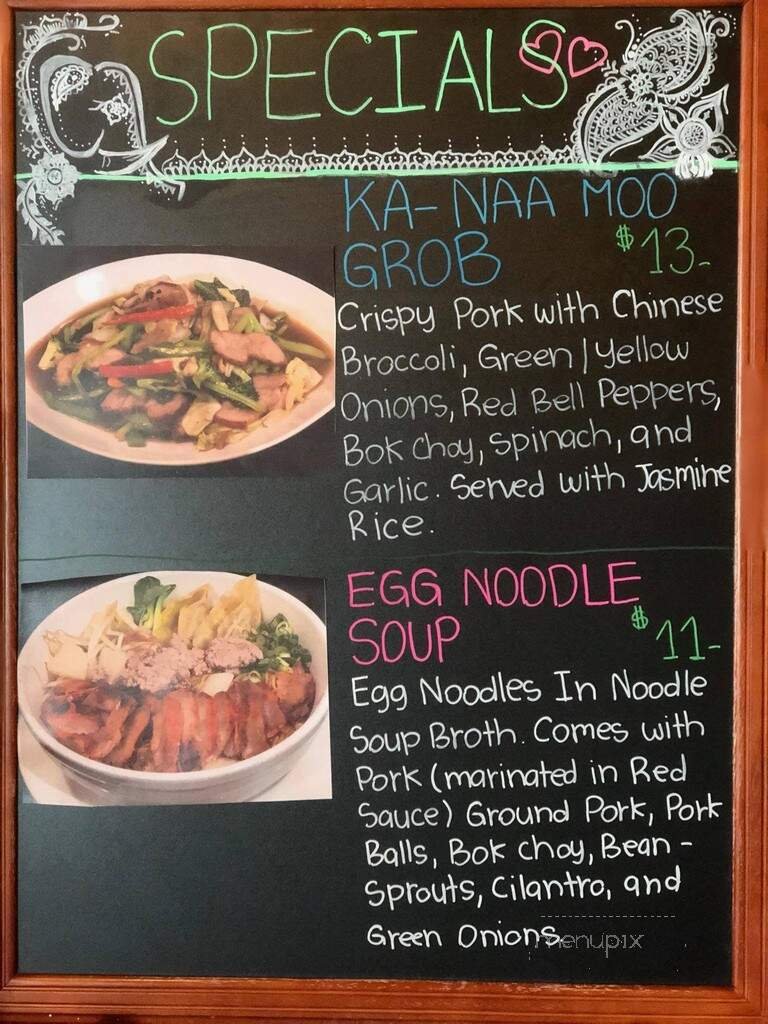 SPECIALS
KA-NAA MOO
GROB $13-
Crispy Pork with Chinese
Broccoli, Green/Yellow
Onions, Red Bell Peppers,
Bok Choy, Spinach, and
Garlic. Served with Jasmine
Rice.
EGG NOODLE
SOUP $11-
Egg Noodles In Noodle
Soup Broth. Comes with
Pork (marinated in Red
Sauce) Ground Pork, Pork
Balls, Bok Choy, Bean-
Sprouts, Cilantro, and
Green Onions
menupix